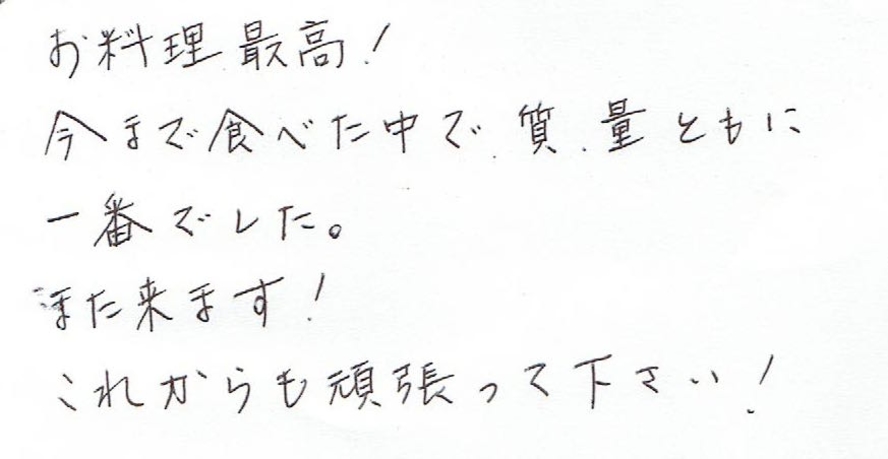 お料理最高！
今まで食べた中で、質、量ともに
一番でした。
また来ます！
これからも頑張って下さい！